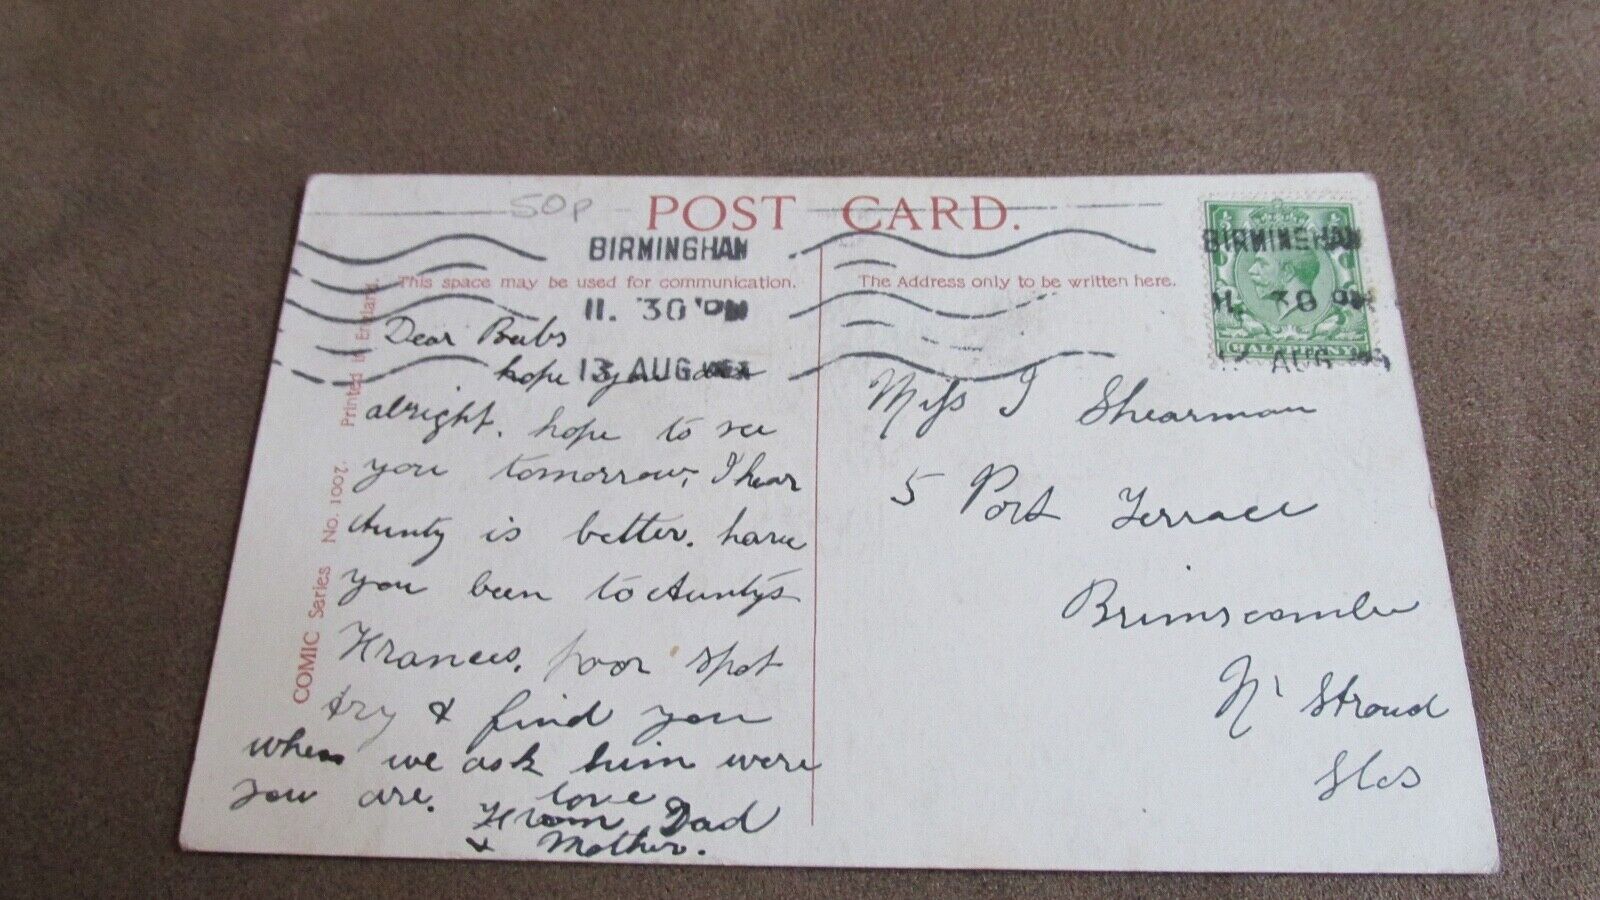 50p
POST CARD.
BIRMINGHAM
11. 30 PM
13 AUG
This space may be used for communication.
The Address only to be written here.
BIRMINGHAM
11. 30 PM
AUG
HALFPENNY
COMIC Series No. 1007. Printed in England.
Dear Bubs
hope you are
alright. hope to see
you tomorrow, I hear
Aunty is better. have
you been to Auntys
Frances. poor spot
try & find you
when we ask him were
you are. love
From Dad
& Mother.
Miss I Shearman
5 Port Terrace
Brimscombe
Nr Stroud
Glos